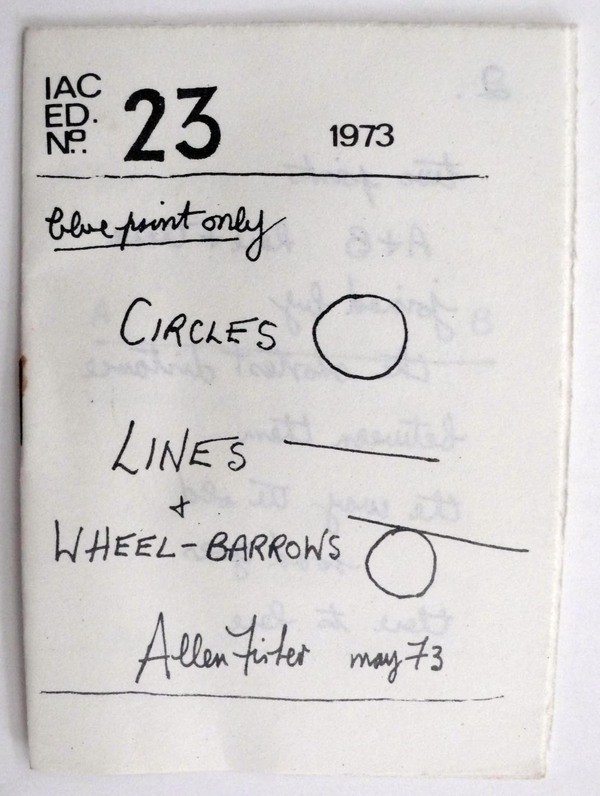 IAC
ED.
Nº. 23 1973
blue-print only
CIRCLES
LINES
+
WHEEL-BARROWS
Allen Fisher may 73